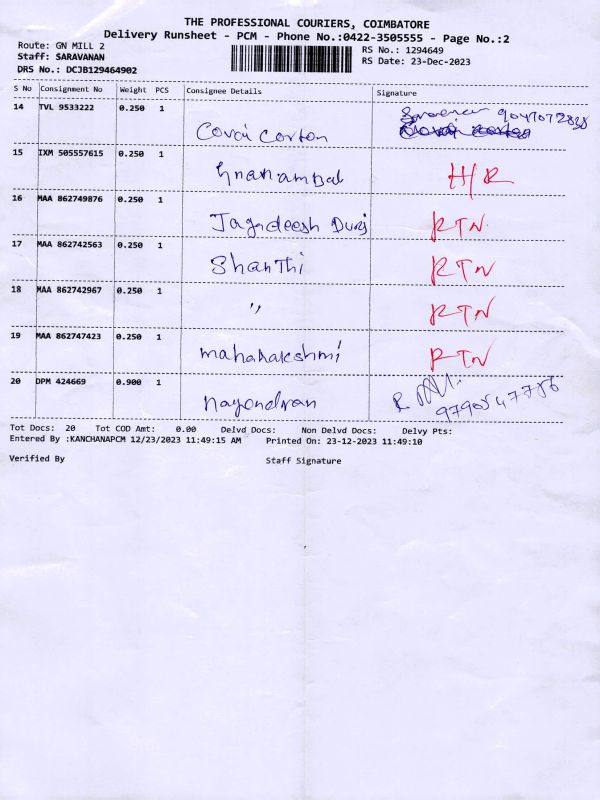 THE PROFESSIONAL COURIERS, COIMBATORE
Delivery Runsheet - PCM - Phone No.:0422-3505555 - Page No.:2
Route: GN MILL 2
RS No.: 1294649
Staff: SARAVANAN
RS Date: 23-Dec-2023
DRS No.: DCJB129464902
S No Consignment No Weight PCS Consignee Details Signature
14 TVL 9533222 0.250 1 Covai Corton
15 IXM 505557615 0.250 1 Gnanambal H/R
16 MAA 862749876 0.250 1 Jagadeesh Durj RTN
17 MAA 862742563 0.250 1 Shanthi RTN
18 MAA 862742967 0.250 1 " RTN
19 MAA 862747423 0.250 1 mahalakshmi RTN
20 DPM 424669 0.900 1 nagendran R
Tot Docs: 20 Tot COD Amt: 0.00 Delvd Docs: Non Delvd Docs: Delvy Pts:
Entered By :KANCHANAPCM 12/23/2023 11:49:15 AM Printed On: 23-12-2023 11:49:10
Verified By Staff Signature